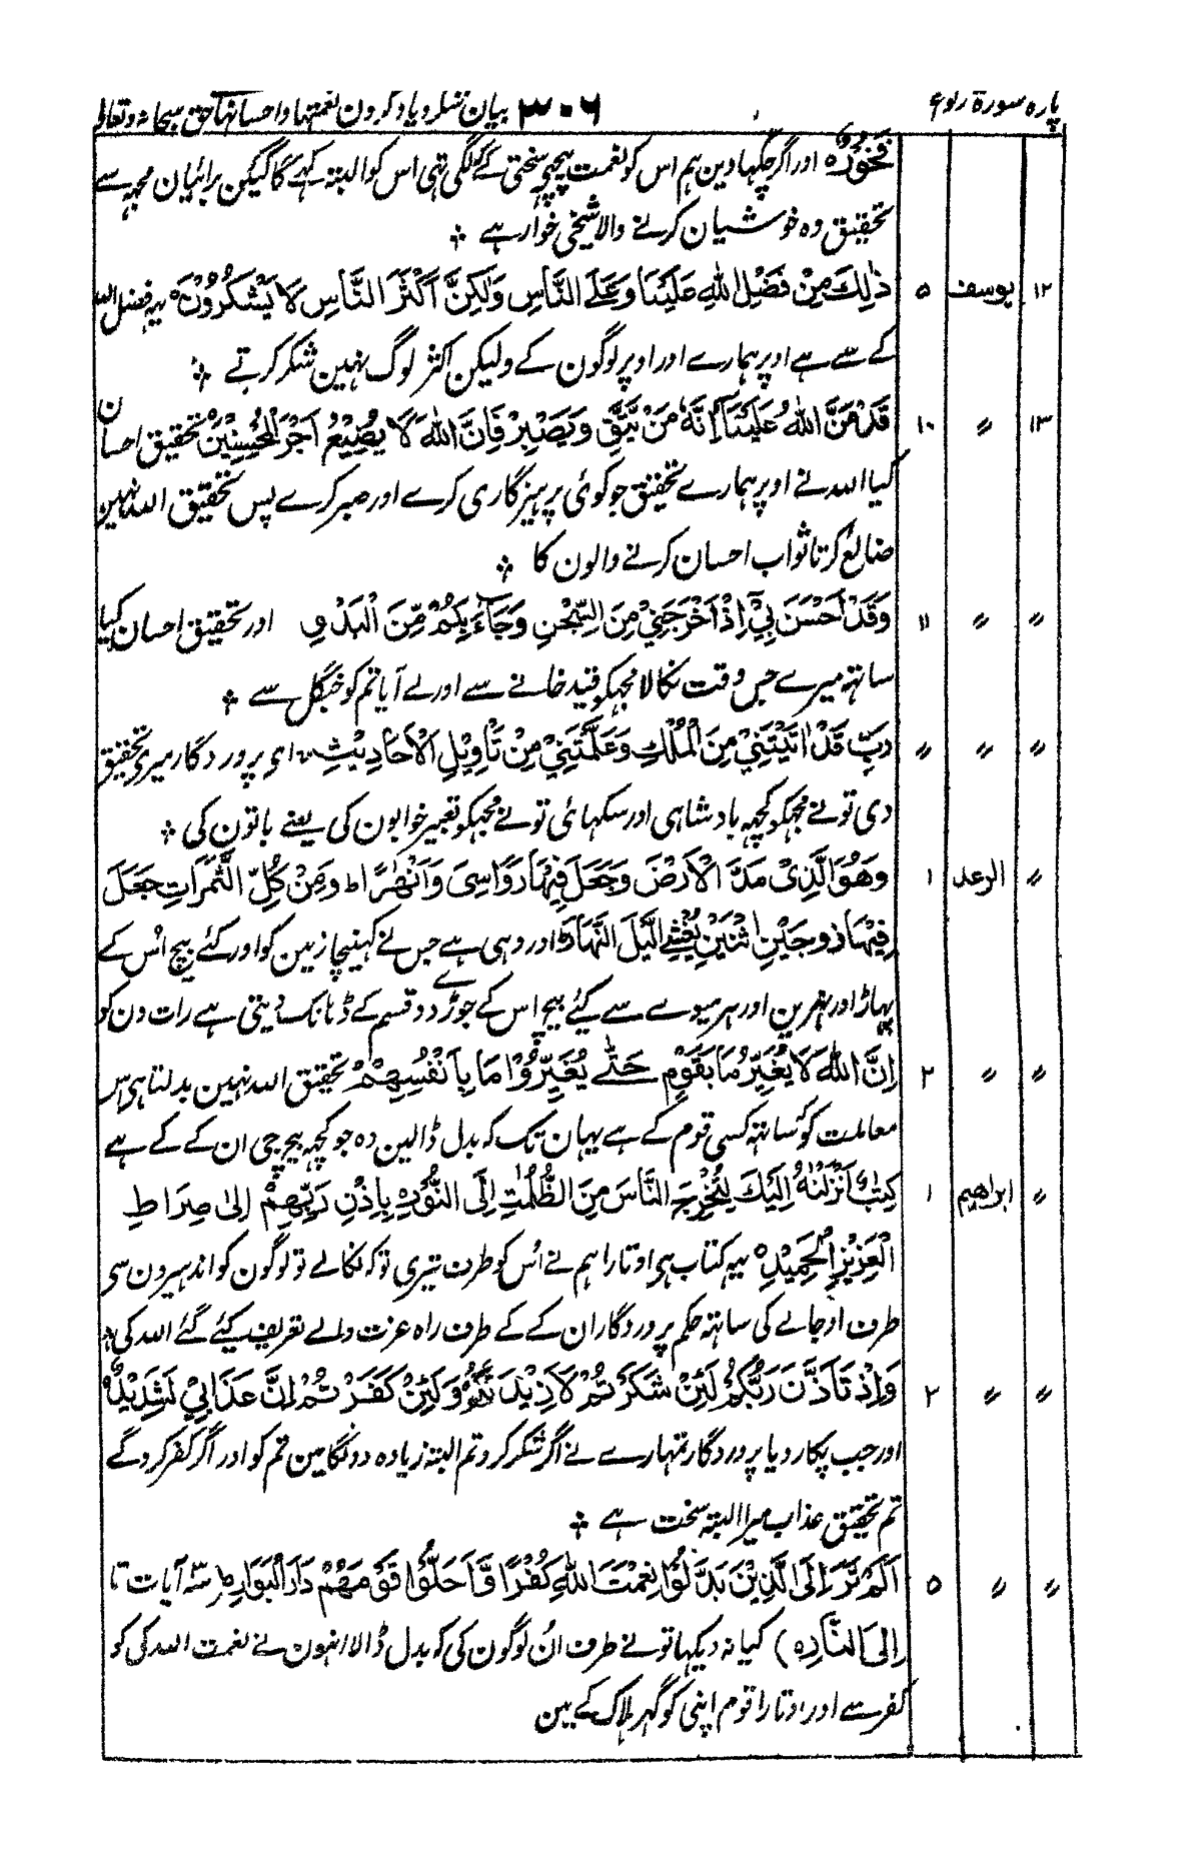 پارہ سورۃ رکوع ۳۰۶ بیان شکر و یاد کردن نعمتہا و احسانہا حق سبحانہ و تعالی
فَخُوْرٌ ہ اور اگر چکھادین ہم اس کو نعمت پیچھے سختی کے کہ لگی تہی اس کو البتہ کہے گا گیکن برائیان مجہہ سے
تحقیق وہ خوشیان کرنے والا شیخی خوار ہے ÷
۱۲ یوسف ۵ ذٰلِكَ مِنْ فَضْلِ اللّٰهِ عَلَیْنَا وَعَلَے النَّاسِ وَلٰکِنَّ اَکْثَرَ النَّاسِ لَا یَشْکُرُوْنَ ہ یہ فضل اللہ
کے سے ہے اوپر ہمارے اور اوپر لوگون کے ولیکن اکثر لوگ نہین شکر کرتے ÷
۱۳ 〃 ۱۰ قَدْ مَنَّ اللّٰهُ عَلَیْنَآ اِنَّهٗ مَنْ یَّتَّقِ وَیَصْبِرْ فَاِنَّ اللّٰهَ لَا یُضِیْعُ اَجْرَ الْمُحْسِنِیْنَ تحقیق احسان
کیا اللہ نے اوپر ہمارے تحقیق جو کوئی پرہیزگاری کرے اور صبر کرے پس تحقیق اللہ نہین
ضائع کرتا ثواب احسان کرنے والون کا ÷
〃 〃 ۱۱ وَقَدْ اَحْسَنَ بِیْٓ اِذْ اَخْرَجَنِیْ مِنَ السِّجْنِ وَجَآءَ بِکُمْ مِّنَ الْبَدْوِ اور تحقیق احسان کیا
ساتہہ میرے جس وقت نکالا مجہکو قید خانے سے اور لے آیا تم کو جنگل سے ÷
〃 〃 〃 رَبِّ قَدْ اٰتَیْتَنِیْ مِنَ الْمُلْكِ وَعَلَّمْتَنِیْ مِنْ تَاْوِیْلِ الْاَحَادِیْثِ اے پروردگار میرے تحقیق
دی تو نے مجہکو کچہہ بادشاہی اور سکہائی تو نے مجہکو تعبیر خوابون کی یعنے باتون کی ÷
〃 الرعد ۱ وَهُوَ الَّذِیْ مَدَّ الْاَرْضَ وَجَعَلَ فِیْهَا رَوَاسِیَ وَاَنْهٰرًا ط وَمِنْ کُلِّ الثَّمَرَاتِ جَعَلَ
فِیْهَا زَوْجَیْنِ اثْنَیْنِ یُغْشِے الَّیْلَ النَّهَارَ ط اور وہی ہے جس نے کہینچا زمین کو اور کئے بیچ اس کے
پہاڑ اور نہرین اور ہر میوے سے کیئے بیچ اس کے جوڑے دو قسم کے ڈہانک دیتی ہے رات دن کو
〃 〃 ۲ اِنَّ اللّٰهَ لَا یُغَیِّرُ مَا بِقَوْمٍ حَتّٰے یُغَیِّرُوْا مَا بِاَنْفُسِهِمْ تحقیق اللہ نہین بدلتا ہی اس
معاملت کو کہ ساتہہ کسی قوم کے ہے یہان تک کہ بدل ڈالین وہ جو کچہہ بیچ جی ان کے کے ہے
〃 ابراهیم ۱ کِتٰبٌ اَنْزَلْنٰهُ اِلَیْكَ لِتُخْرِجَ النَّاسَ مِنَ الظُّلُمٰتِ اِلَی النُّوْرِ بِاِذْنِ رَبِّهِمْ اِلٰی صِرَاطِ
الْعَزِیْزِ الْحَمِیْدِ ہ یہہ کتاب ہی اوتارا ہم نے اُس کو طرف تیری تو کہ نکالے تو لوگون کو اندہیرون سی
طرف اوجالے کی ساتہہ حکم پروردگار ان کے کے طرف راہ عزت والے تعریف کیئے گئے اللہ کی ÷
〃 〃 ۲ وَاِذْ تَاَذَّنَ رَبُّکُمْ لَئِنْ شَکَرْتُمْ لَاَزِیْدَنَّکُمْ وَلَئِنْ کَفَرْتُمْ اِنَّ عَذَابِیْ لَشَدِیْدٌ
اور جب پکار دیا پروردگار تمہارے نے اگر شکر کرو تم البتہ زیادہ دونگا مین تم کو اور اگر کفر کروگے
تم تحقیق عذاب میرا البتہ سخت ہے ÷
〃 〃 ۵ اَلَمْ تَرَ اِلَی الَّذِیْنَ بَدَّلُوْا نِعْمَتَ اللّٰهِ کُفْرًا وَّاَحَلُّوْا قَوْمَهُمْ دَارَ الْبَوَارِ آیات تا
اِلَی النَّارِ ہ ) کیا نہ دیکہا تو نے طرف اُن لوگون کی کہ بدل ڈالا انہون نے نعمت اللہ کی کو
کفر سے اور اوتارا قوم اپنی کو گہر ہلاک کے بین